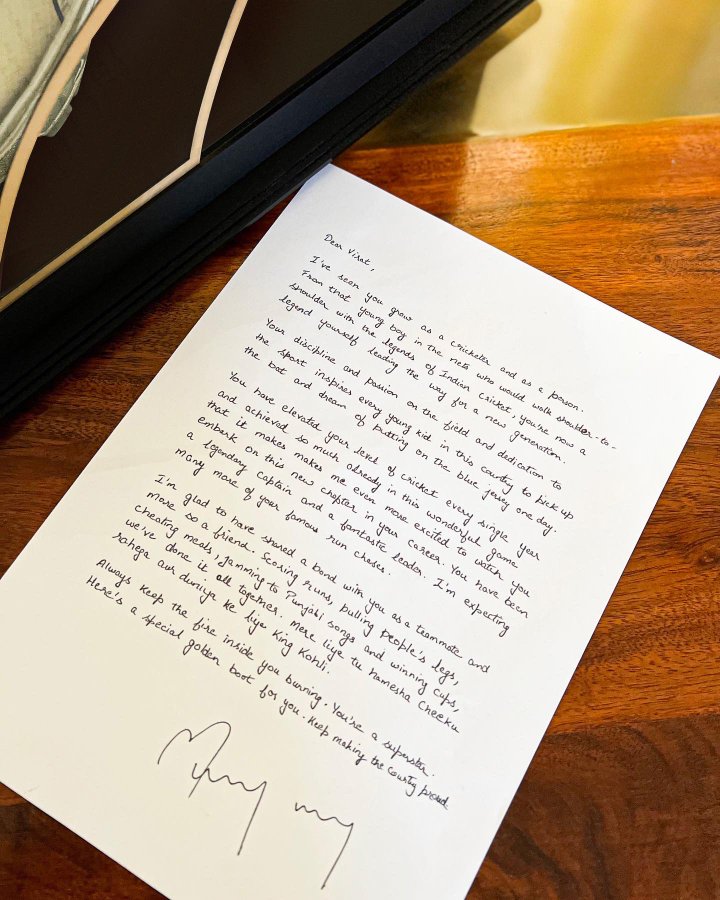 Dear Virat,
I've seen you grow as a cricketer and as a person.
From that young boy in the nets who would walk shoulder-to-
shoulder with the legends of Indian cricket, you're now a
legend yourself leading the way for a new generation.
Your discipline and passion on the field and dedication to
the sport inspires every young kid in this country to pick up
the bat and dream of putting on the blue jersey one day.
You have elevated your level of cricket every single year
and achieved so much already in this wonderful game
that it makes makes me even more excited to watch you
embark on this new chapter in your career. You have been
a legendary captain and a fantastic leader. I'm expecting
many more of your famous run chases.
I'm glad to have shared a bond with you as a teammate and
more so a friend. Scoring runs, pulling people's legs,
cheating meals, jamming to Punjabi songs and winning cups,
we've done it all together. Mere liye tu hamesha Cheeku
rahega aur duniya ke liye King Kohli.
Always keep the fire inside you burning. You're a superstar.
Here's a special golden boot for you. Keep making the country proud